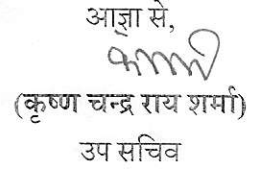 आज्ञा से,
(कृष्ण चन्द्र राय शर्मा)
उप सचिव